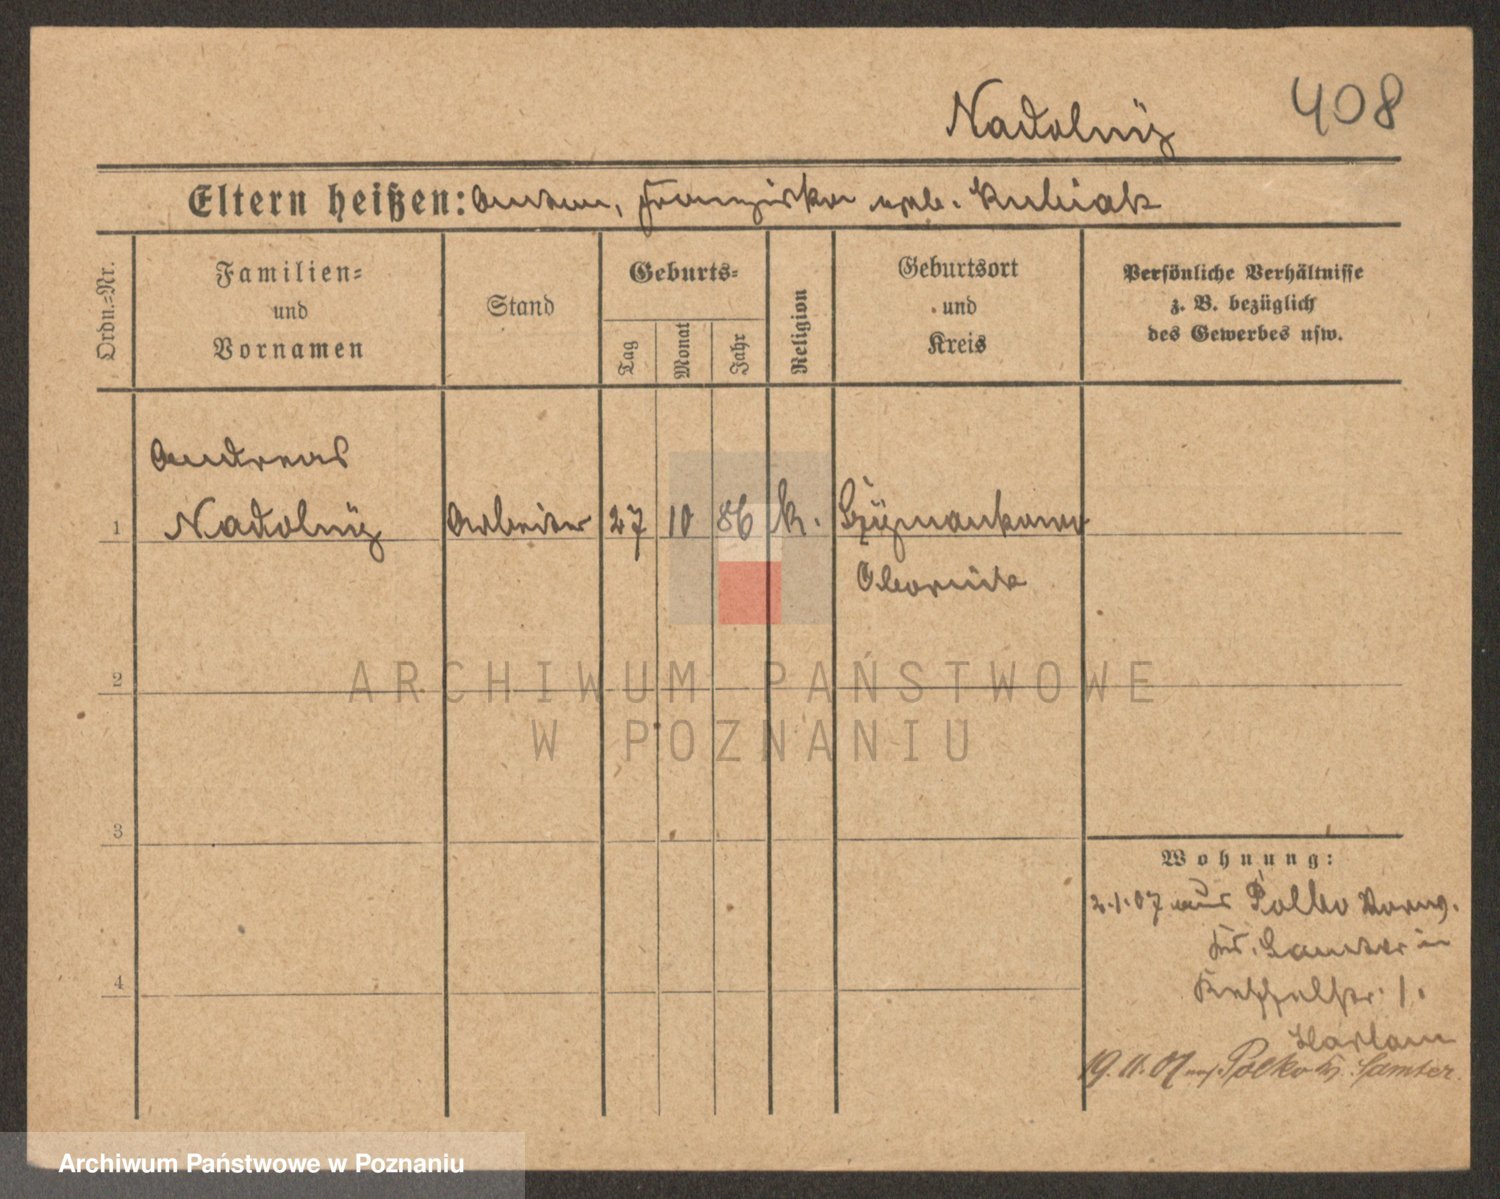 Nadolny 408
Eltern heißen: Anton, Franziska geb. Kubiak
Ordn.-Nr.
Familien-
und
Vornamen
Stand
Geburts-
Tag
Monat
Jahr
Religion
Geburtsort
und
Kreis
Persönliche Verhältnisse
z. B. bezüglich
des Gewerbes usw.
Andreas
1 Nadolny Arbeiter 27 10 86 k. Szymankowo
Obornik
2
ARCHIWUM PAŃSTWOWE
W POZNANIU
3
Wohnung:
2.1.07 aus Polko Vorw.
Kr. Samter in
4
19.11.07 Polko Kr. Samter
Archiwum Państwowe w Poznaniu